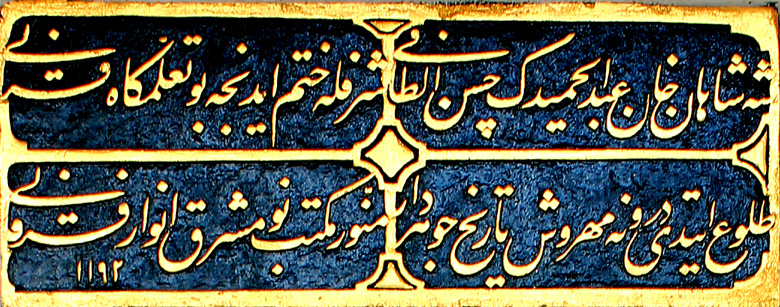 شه شاهان خان عبدالحمیدک حسن الطافی
شرفله ختم ایدنجه بو تعلمگاه قرآنی
طلوع ایتدی درونه مهروش تاریخ جوهردار
منور مکتب نو مشرق انوار فرقانی
١١٩٢